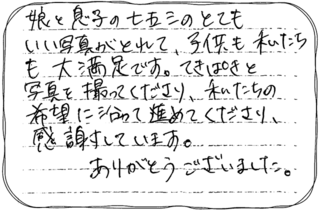 娘と息子の七五三のとても
いい写真がとれて、子供も私たち
も大満足です。てきぱきと
写真を撮ってくださり、私たちの
希望に沿って進めてくださり、
感謝しています。
ありがとうございました。